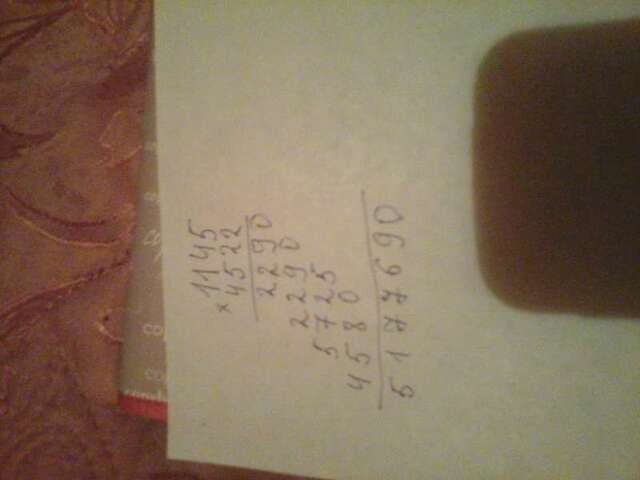 1145
× 4522
2290
2290
5725
4580
5177690